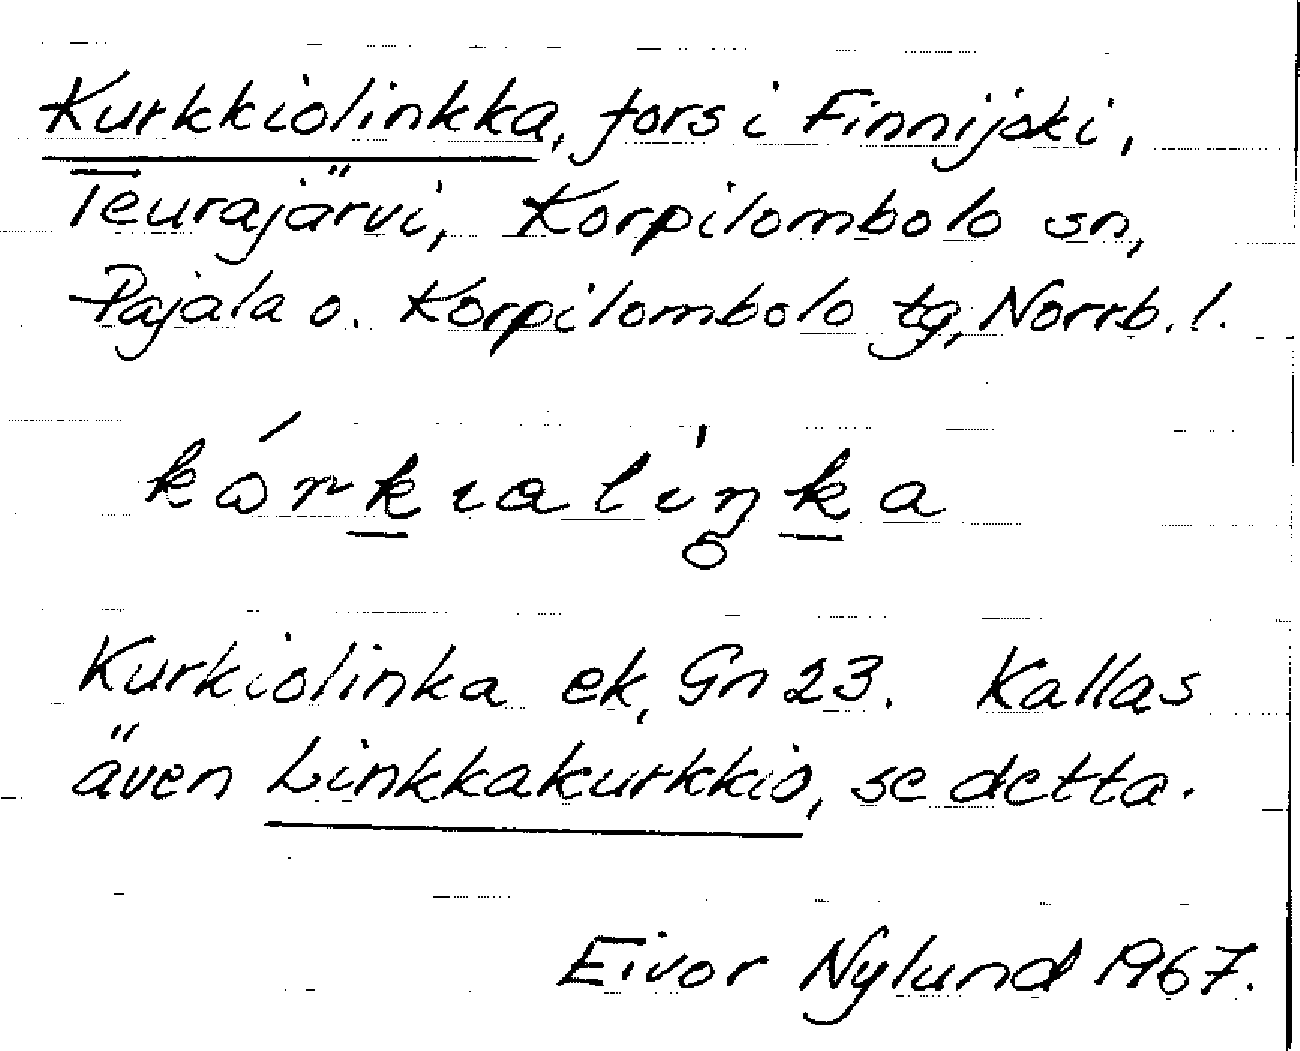 Kurkkiolinkka, fors i Finnijoki,
Teurajärvi, Korpilombolo sn,
Pajala o. Korpilombolo tg, Norrb. l.
kórk̲ıalı̍ŋ̥k̲a
Kurkiolinka ek, Gn 23. Kallas
även Linkkakurkkio, se detta.
Eivor Nylund 1967.